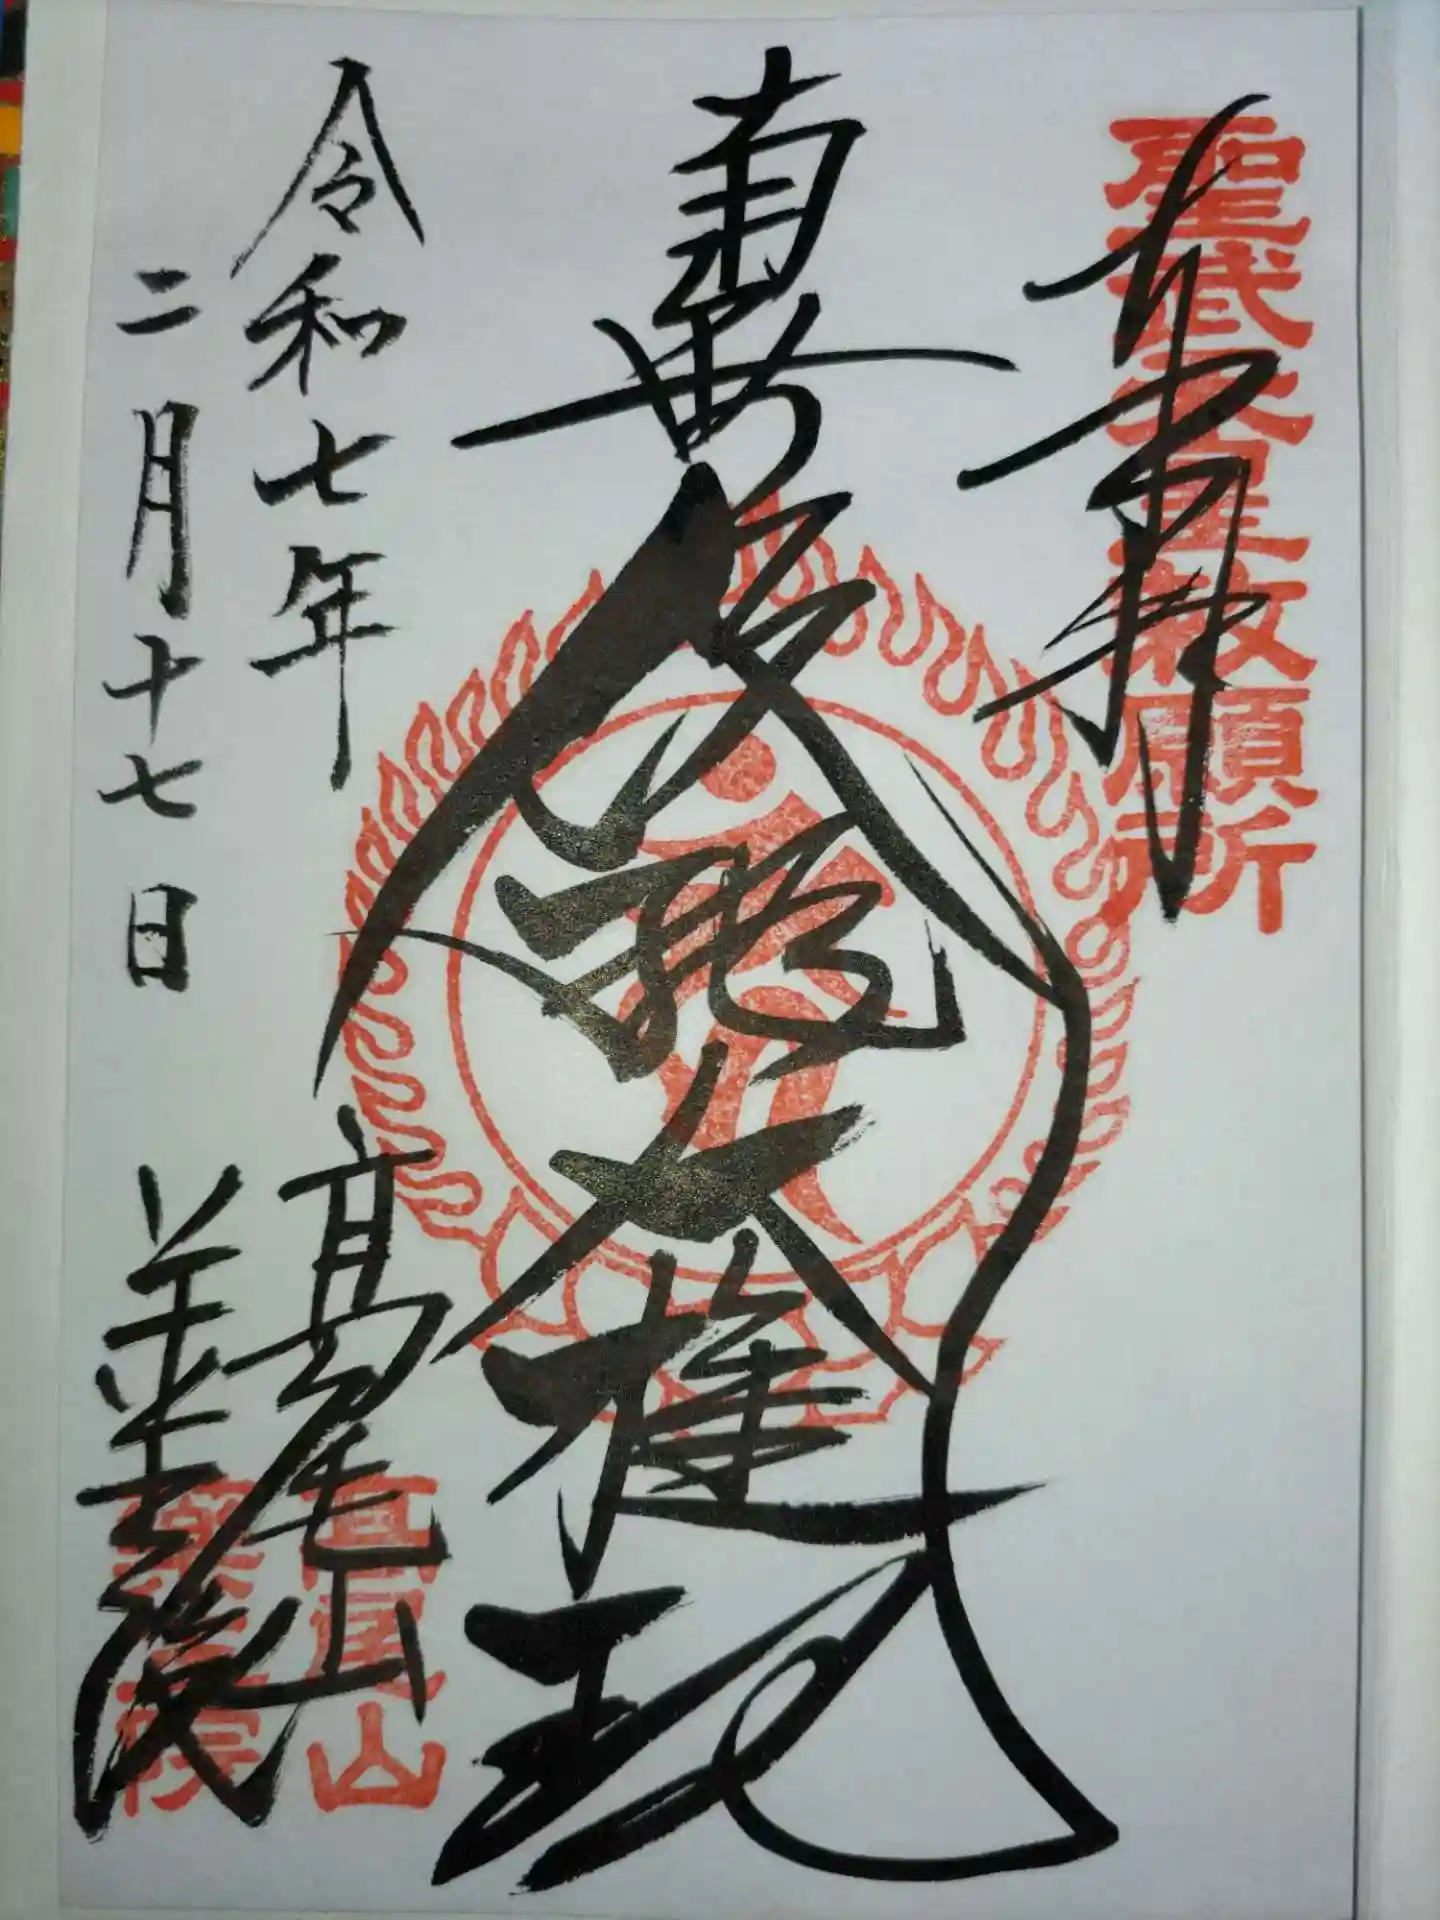 奉拝
聖武天皇敕願所
南無飯縄大権現
令和七年
二月十七日
高尾山
薬王院
高尾山
薬王院